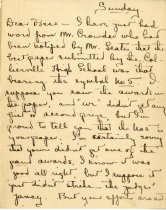 Sunday
Dear Boss — I have just had
word from Mr. Crowder who had
been notified by Mr. Leath that the
best paper submitted by the Col-
High School was that
bearing the symbol No 5
suppose you saw the award in
the paper, and we didn't get any
just a second prize, but I'm
proud to tell that the No 5 is
newspaper. I'm certainly sorry
that you didn't get one of the
grand awards, I know it was
good all right, but I suppose it
just didn't strike the judges'
fancy. But your efforts are in